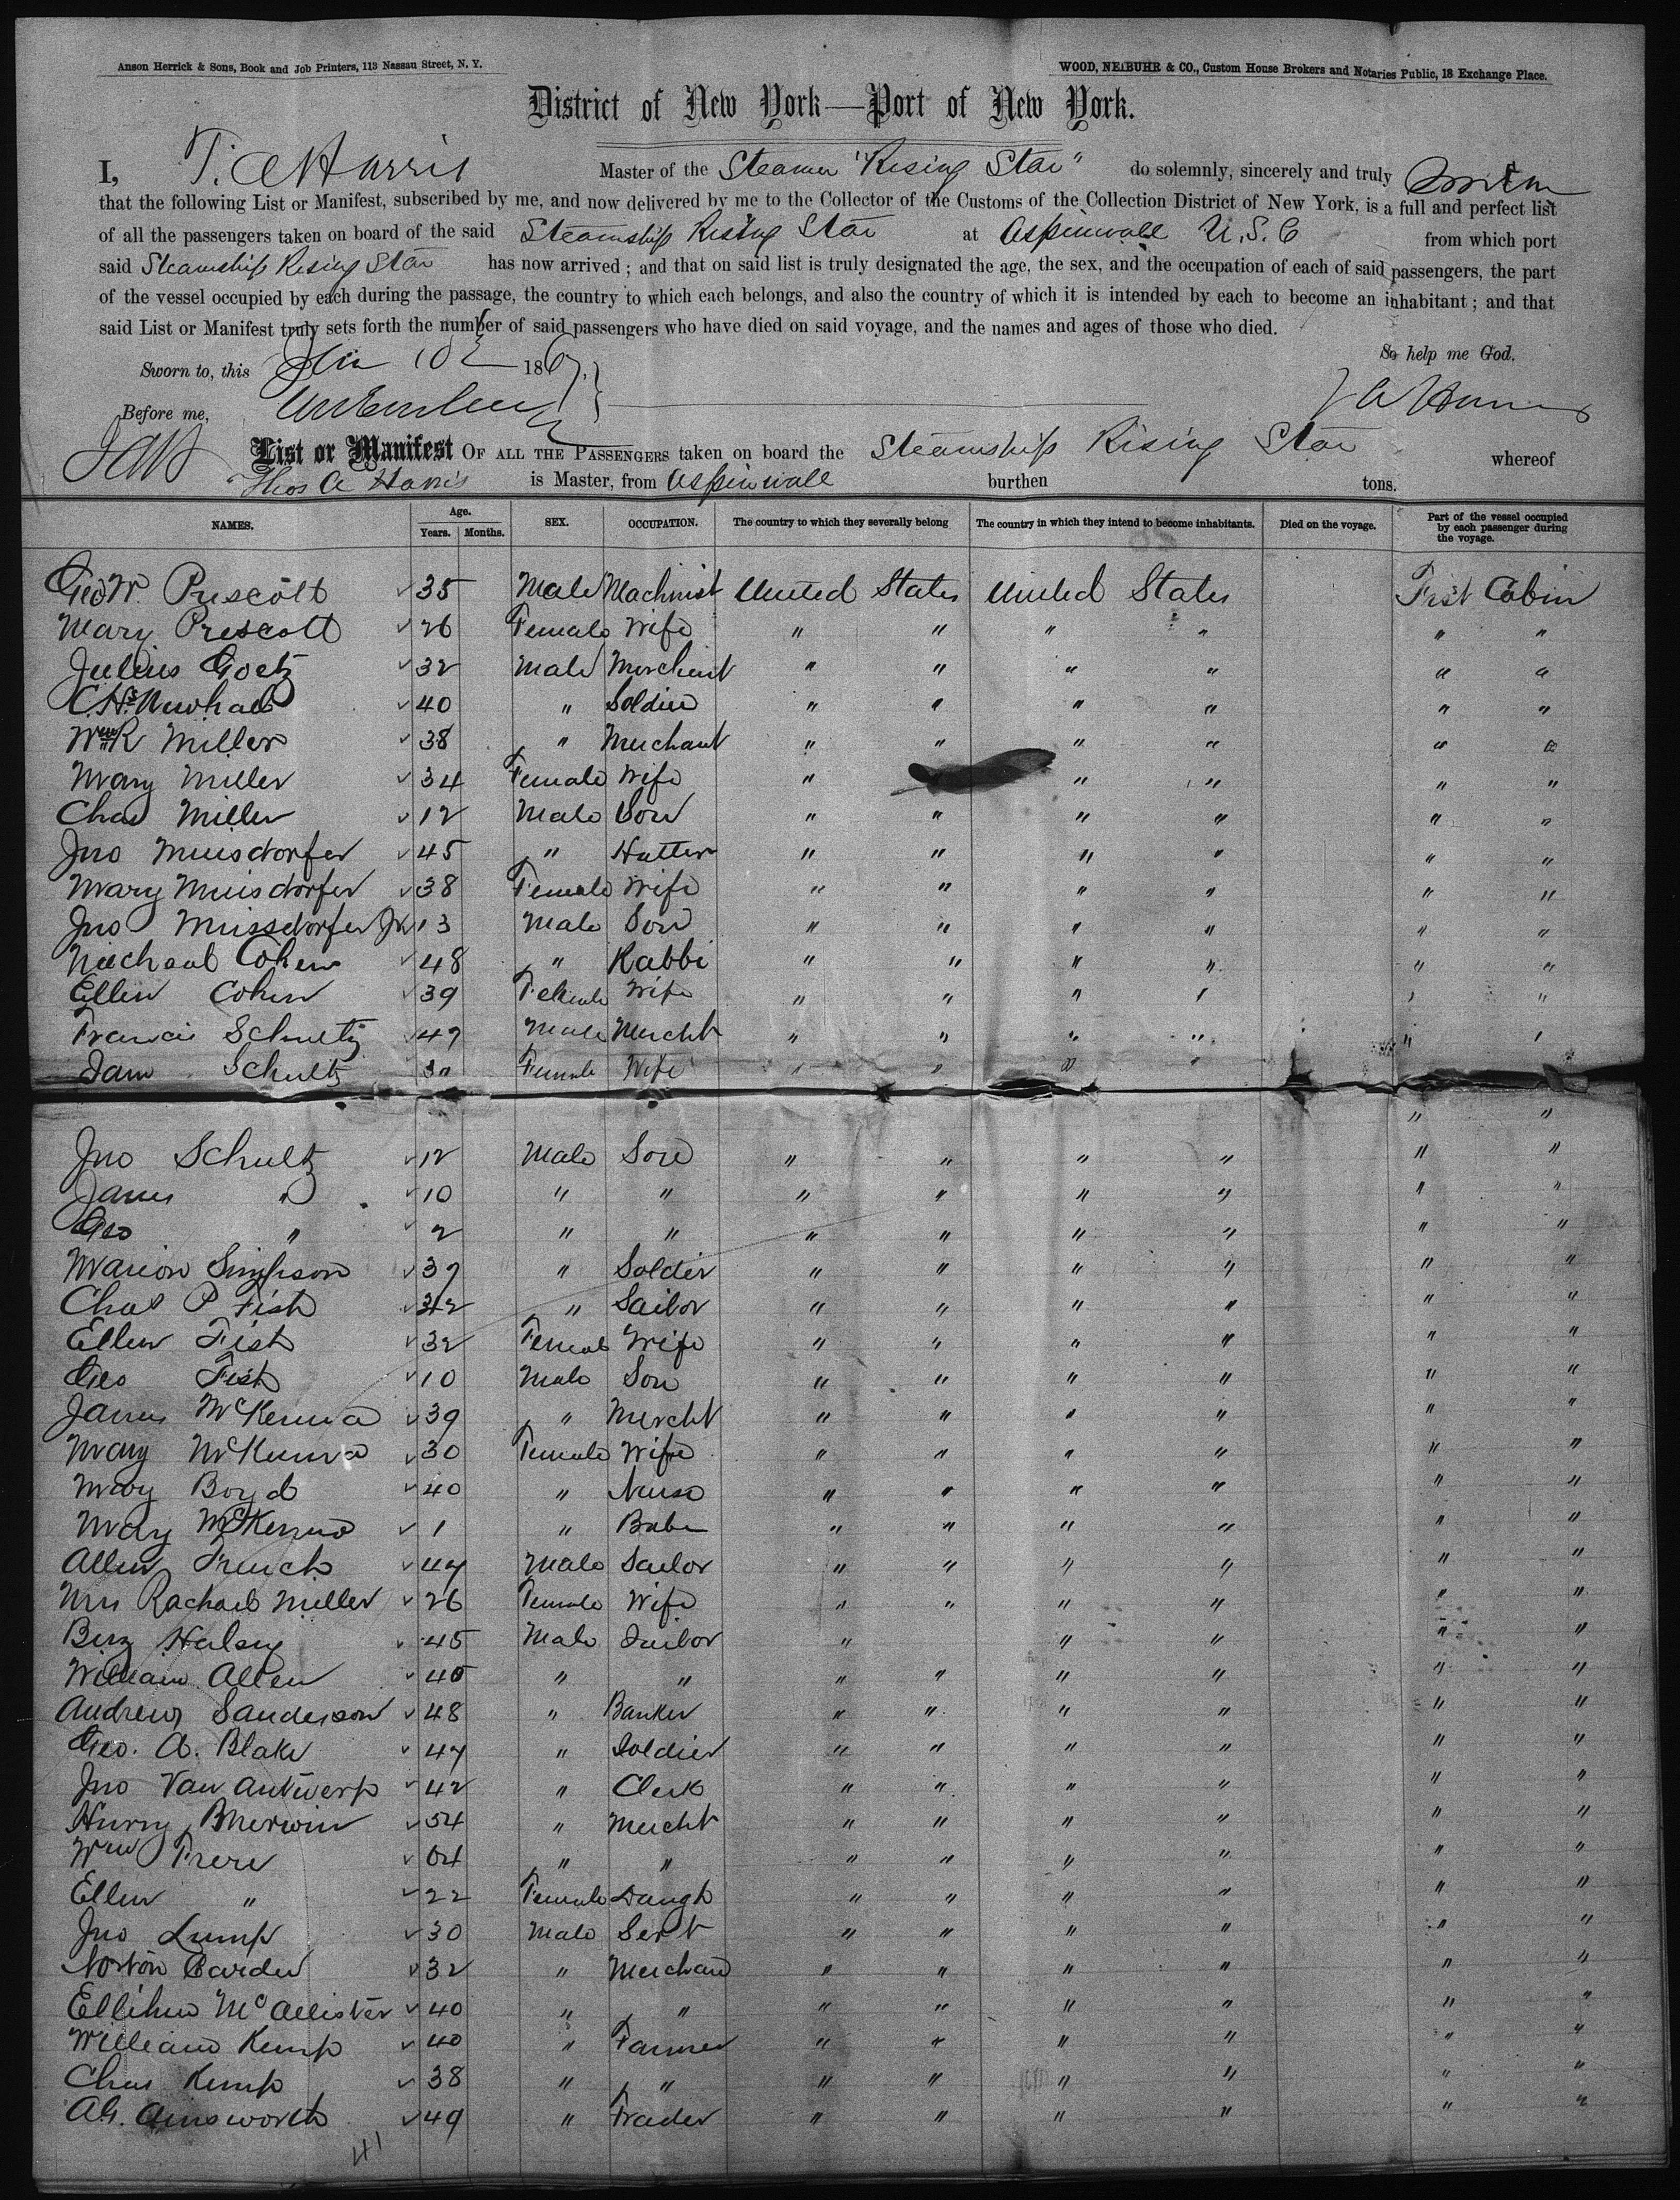 Anson Herrick & Sons, Book and Job Printers, 113 Nassau Street, N. Y. WOOD, NEIBUHR & CO., Custom House Brokers and Notaries Public, 18 Exchange Place.
District of New York—Port of New York.
I, T. A Harris Master of the Steamer "Rising Star" do solemnly, sincerely and truly
that the following List or Manifest, subscribed by me, and now delivered by me to the Collector of the Customs of the Collection District of New York, is a full and perfect list
of all the passengers taken on board of the said Steamship Rising Star at Aspinwall U.S.C from which port
said Steamship Rising Star has now arrived; and that on said list is truly designated the age, the sex, and the occupation of each of said passengers, the part
of the vessel occupied by each during the passage, the country to which each belongs, and also the country of which it is intended by each to become an inhabitant; and that
said List or Manifest truly sets forth the number of said passengers who have died on said voyage, and the names and ages of those who died.
So help me God.
Sworn to, this 10 1867.
Before me, T A Harris
List or Manifest OF ALL THE PASSENGERS taken on board the Steamship Rising Star whereof
Thos A Harris is Master, from Aspinwall burthen tons.
NAMES. Age. Years. Months. SEX. OCCUPATION. The country to which they severally belong The country in which they intend to become inhabitants. Died on the voyage. Part of the vessel occupied by each passenger during the voyage.
Geo W. Prescott 35 Male Machinist United States United States First Cabin
Mary Prescott 26 Female Wife " " " " " "
Julius Goetz 32 Male Merchant " " " " " "
C. H. Newhall 40 " Soldier " " " " " "
Wm R Miller 38 " Merchant " " " " " "
Mary Miller 34 Female Wife " " " " "
Chas Miller 12 Male Son " " " " " "
Jno Muisdorfer 45 " Hatter " " " " " "
Mary Muisdorfer 38 Female Wife " " " " " "
Jno Muissdorfer Jr 13 Male Son " " " " " "
Michael Cohen 48 " Rabbi " " " " " "
Ellen Cohen 39 Female Wife " " " " " "
Francis Schultz 47 Male Mercht " " " " " "
Jane Schultz 30 Female Wife " " " " "
" "
Jno Schultz 12 Male Son " " " " " "
James " 10 " " " " " " " "
Geo " 2 " " " " " " " "
Marion Simpson 37 " Soldier " " " " " "
Chas P Fish 42 " Sailor " " " " " "
Ellen Fish 32 Female Wife " " " " " "
Geo Fish 10 Male Son " " " " " "
James McKenna 39 " Mercht " " " " " "
Mary McKenna 30 Female Wife " " " " " "
Mary Boyd 40 " Nurse " " " " " "
Mary McKenna 1 " Babe " " " " " "
Allen French 47 Male Sailor " " " " " "
Mrs Rachael Miller 26 Female Wife " " " " " "
Benj Halsey 45 Male Sailor " " " " "
William Allen 40 " " " " " " " "
Andrew Sanderson 48 " Banker " " " " " "
Geo. A. Blake 47 " Soldier " " " " " "
Jno Van Antwerp 42 " Clerk " " " " " "
Henry B Merwin 54 " Mercht " " " " " "
Wm Frere 64 " " " " " " " "
Ellen " 22 Female Daugh " " " " " "
Jno Lump 30 Male Servt " " " " " "
Norton Carder 32 " Merchant " " " " " "
Ellihue McAllister 40 " " " " " " " "
William Kemp 40 " Farmer " " " " " "
Chas Kemp 38 " " " " " " " "
A G. Ainsworth 49 " Trader " " " " " "
41